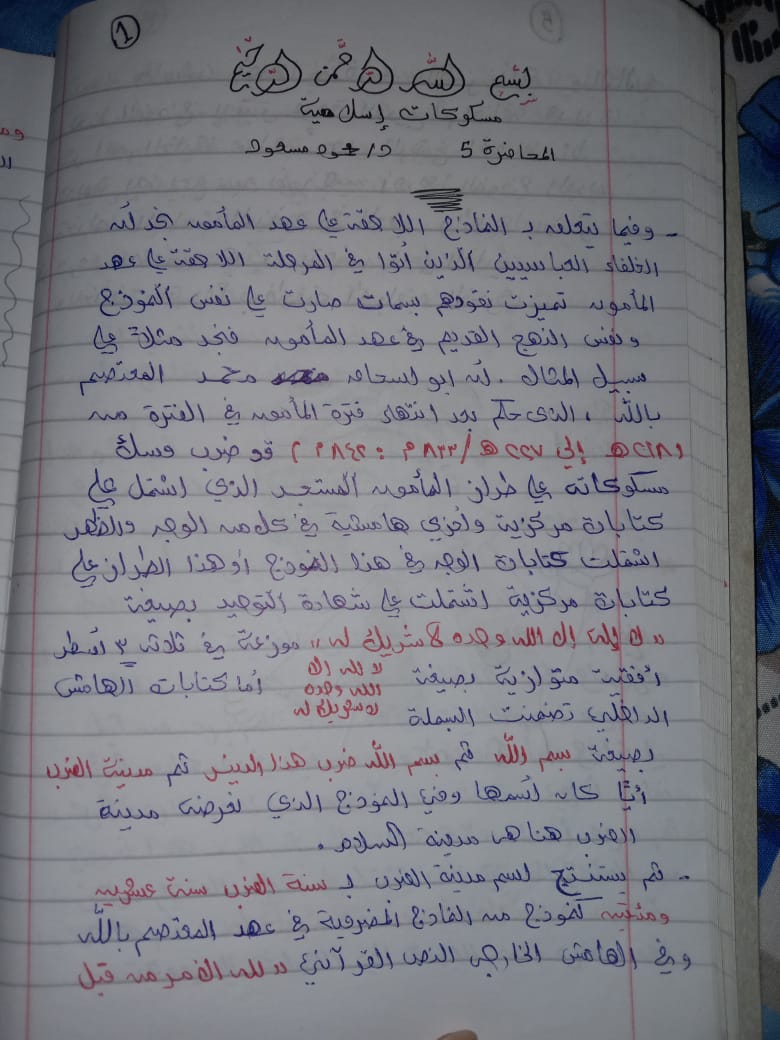 1
بسم الله الرحمن الرحيم
مسكوكات إسلامية
المحاضرة 5 د/ مسعود
- وفيما يتعلق بـ النماذج اللاحقة على عهد المأمون نجد أن
الخلفاء العباسيين الذين أتوا في المرحلة اللاحقة على عهد
المأمون تميزت نقودهم بسمات صارت على نفس النموذج
ونفس النهج القديم في عهد المأمون فنجد مثلاً على
سبيل المثال . أن ابو اسحاق محمد المعتصم
بالله ، الذى حكم بعد انتهاء فترة المأمون في الفترة من
(٢١٨هـ إلي ٢٢٧هـ / ٨٣٣م : ٨٤٢م) قد ضرب وسك
مسكوكاته على طراز المأمون المستجد الذي اشتمل علي
كتابات مركزية وأخري هامشية في كل من الوجه والظهر
اشتملت كتابات الوجه في هذا النموذج أو هذا الطراز علي
كتابات مركزية اشتملت على شهادة التوحيد بصيغة
" لا إله إلا الله وحده لا شريك له " موزعة في ثلاث ٣ أسطر
أفقية متوازية بصيغة لا إله إلا أما كتابات الهامش
الله وحده
لا شريك له
الداخلي تضمنت البسملة
بصيغة بسم الله ثم بسم الله ضرب هذا الدينر ثم مدينة الضرب
أيًا كان اسمها وفي النموذج الذي نعرضه مدينة
الضرب هنا هى مدينة السلام .
- ثم يستنتج اسم مدينة الضرب بـ سنة الضرب سنة عشرين
ومئتين كنموذج من النماذج المضروبة في عهد المعتصم بالله
وفي الهامش الخارجى النص القرآني " لله الأمر من قبل